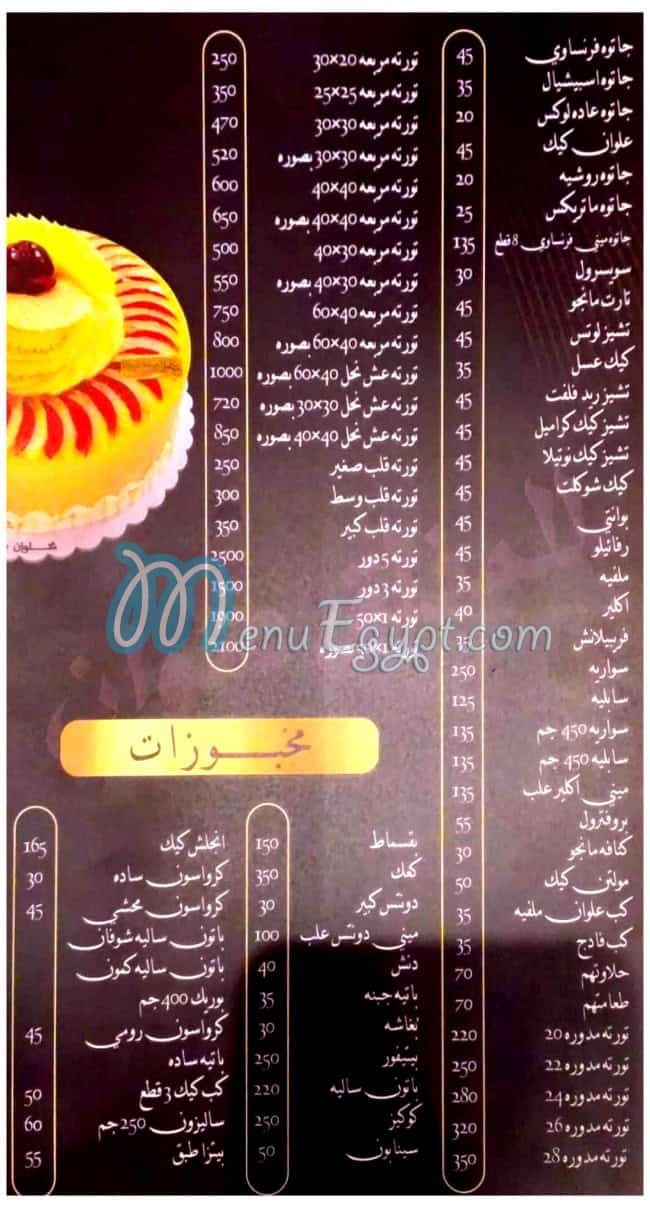 جاتوه فرنساوي 45
جاتوه اسبيشيال 35
جاتوه عاده لوكس 20
علوان كيك 45
جاتوه روشيه 20
جاتوه ماتريكس 25
جاتوه ميني فرنساوي 8 قطع 135
سويسرول 30
تارت مانجو 45
تشيز لوتس 45
كيك عسل 35
تشيز ريد فلفت 45
تشيز كيك كراميل 45
تشيز كيك نوتيلا 45
كيك شوكلت 45
بوانتي 45
رفائيلو 45
ملفيه 35
اكلير 40
فربيلانش 35
سواريه 250
سابليه 125
سواريه 450 جم 135
سابليه 450 جم 135
ميني اكلير علب 135
بروفترول 55
كنافه مانجو 30
مولتن كيك 50
كب علوان ملفيه 35
كب فادج 35
حلاوتهم 70
طعامتهم 70
تورته مدوره 20 220
تورته مدوره 22 250
تورته مدوره 24 280
تورته مدوره 26 320
تورته مدوره 28 350
تورته مربعه 20×30 250
تورته مربعه 25×25 350
تورته مربعه 30×30 470
تورته مربعه 30×30 بصوره 520
تورته مربعه 40×40 600
تورته مربعه 40×40 بصوره 650
تورته مربعه 30×40 500
تورته مربعه 30×40 بصوره 550
تورته مربعه 40×60 750
تورته مربعه 40×60 بصوره 800
تورته عش نحل 40×60 بصوره 1000
تورته عش نحل 30×30 بصوره 720
تورته عش نحل 40×40 بصوره 850
تورته قلب صغير 250
تورته قلب وسط 300
تورته قلب كبير 350
تورته 5 دور 2500
تورته 3 دور 1500
تورته 1×50
بصوره 2100
MenuEgypt.com
مخبوزات
بقسماط 150
كعك 350
دونتس كبير 30
ميني دونتس علب 100
دنش 40
باتيه جبنه 35
بغاشه 30
بيتيفور 250
باتون ساليه 220
كوكيز 250
سينابون 50
انجلش كيك 165
كرواسون ساده 30
كرواسون محشي 45
باتون ساليه شوفان
باتون ساليه كمون
بوريك 400 جم
كرواسون رومي 45
باتيه ساده
كب كيك 3 قطع 50
ساليزون 250 جم 60
بيتزا طبق 55